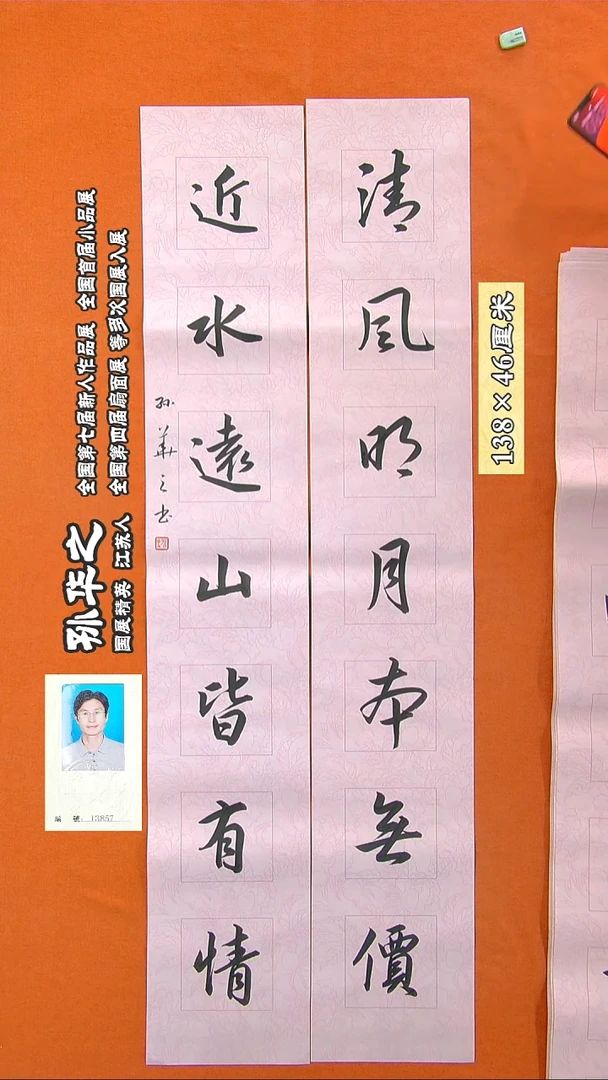 清風明月本無價
近水遠山皆有情
孙華之书
138×46厘米
全国第七届新人作品展 全国首届小品展
全国第四届扇面展 等多次国展入展
孙华之
国展精英 江苏人
编 號: 13857